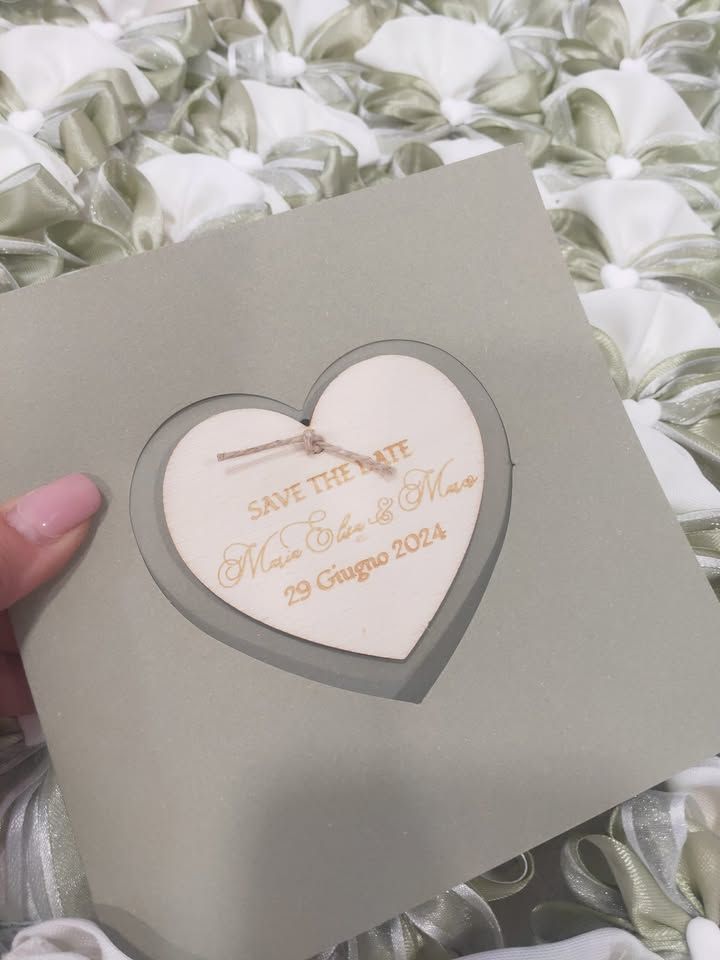 SAVE THE DATE
Maria Elisa & Marco
29 Giugno 2024